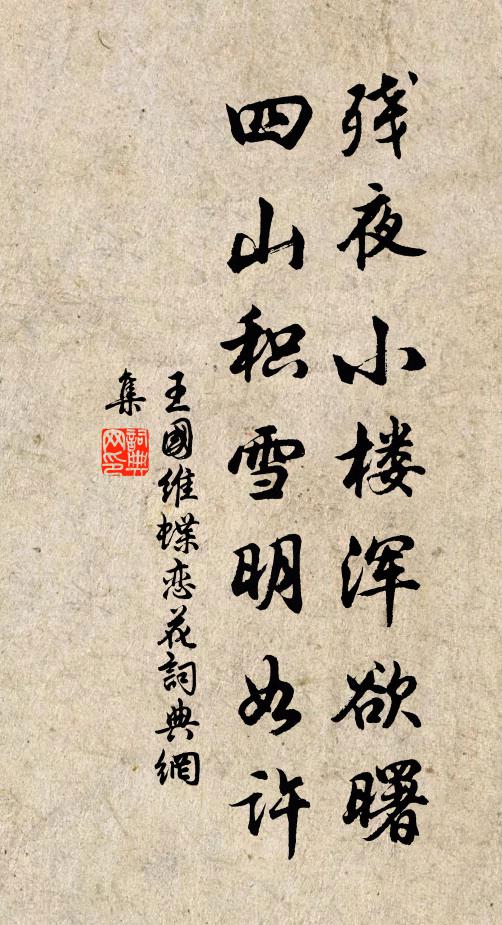 残夜小楼浑欲曙
四山积雪明如许
王國维蝶恋花詞典網
集
詞典网印